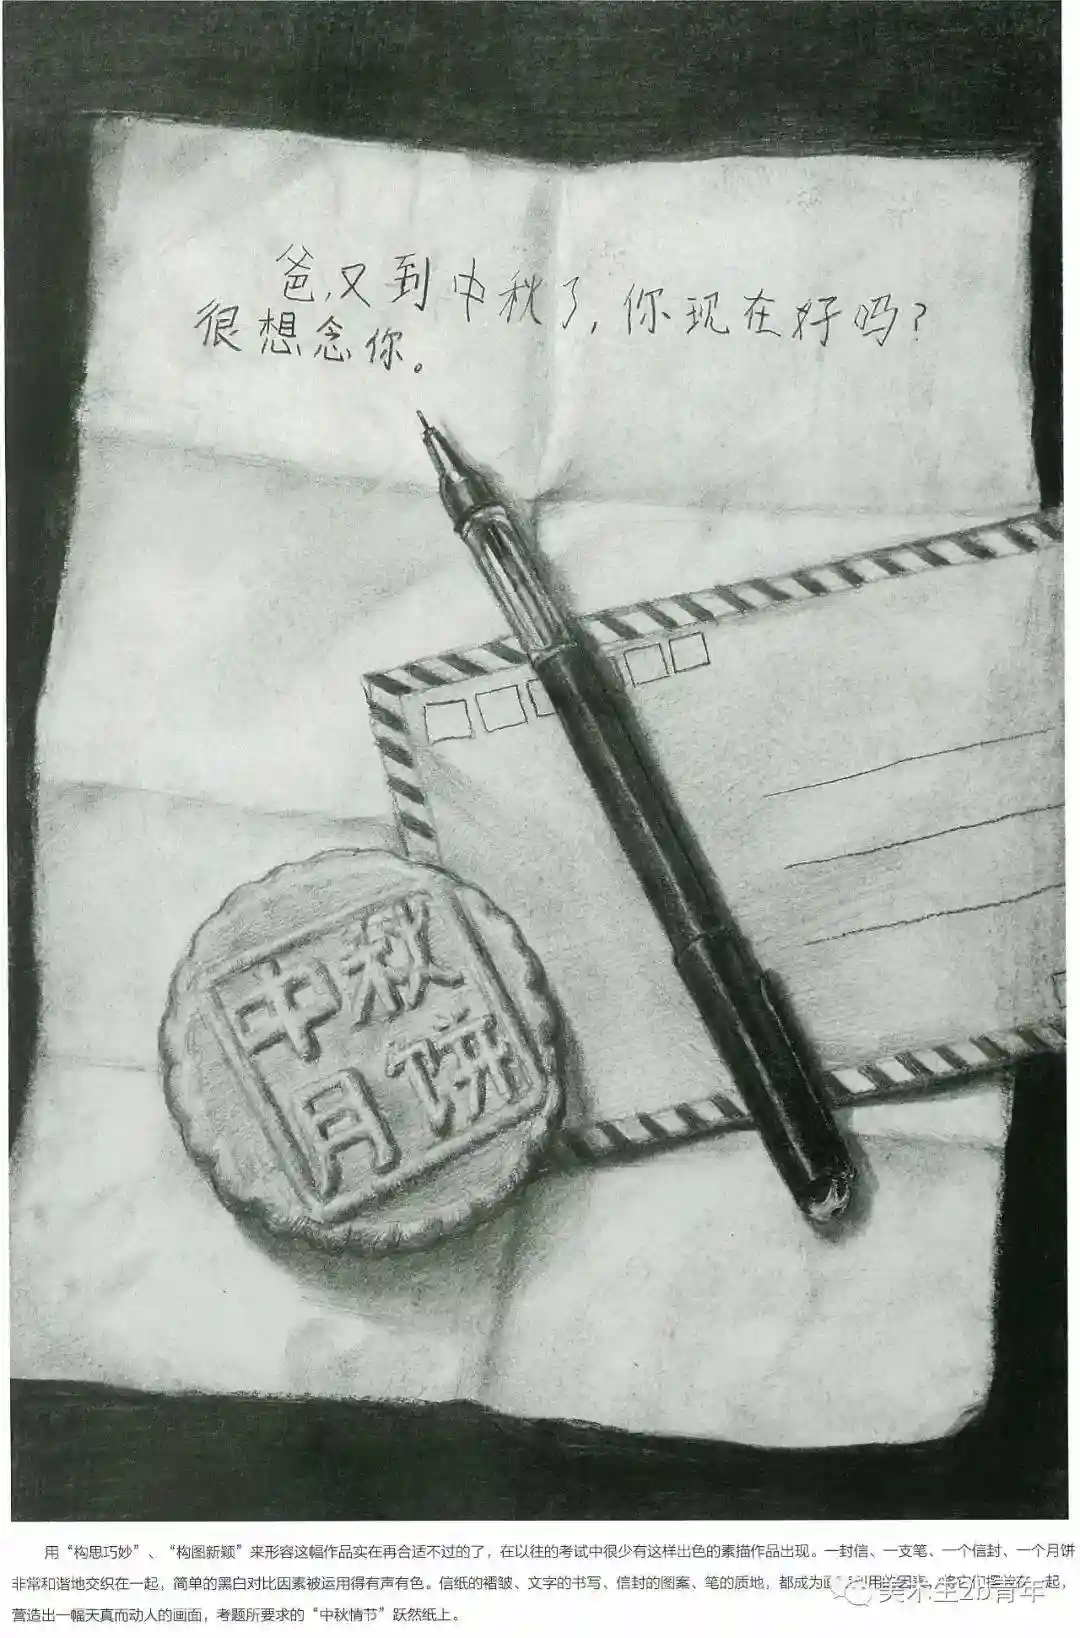 爸,又到中秋了,你现在好吗?
很想念你。
中秋
月饼
用“构思巧妙”、“构图新颖”来形容这幅作品实在再合适不过的了，在以往的考试中很少有这样出色的素描作品出现。一封信、一支笔、一个信封、一个月饼
非常和谐地交织在一起，简单的黑白对比因素被运用得有声有色。信纸的褶皱、文字的书写、信封的图案、笔的质地，都成为画利用的因素，将它们摆放在一起，
营造出一幅天真而动人的画面，考题所要求的“中秋情节”跃然纸上。
美术生2b青年